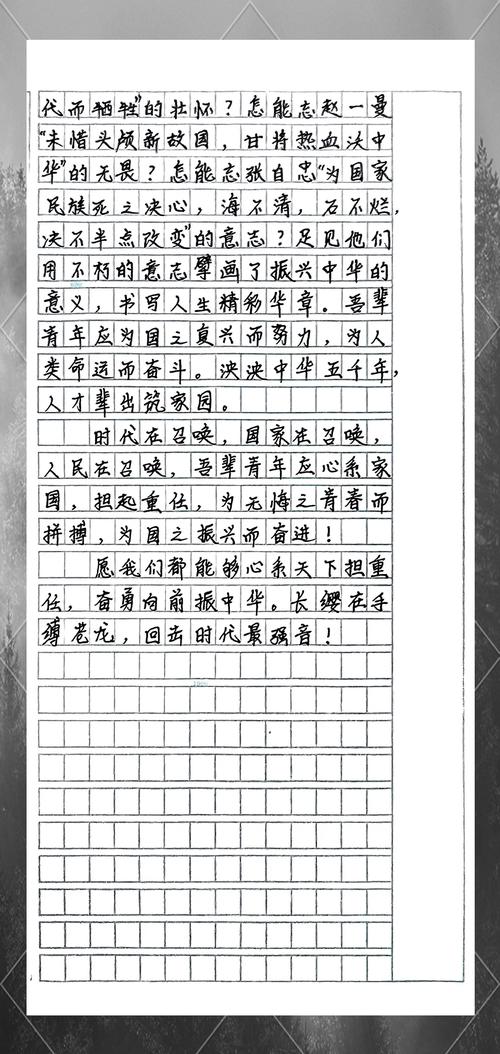 代而牺牲”的壮怀？怎能忘赵一曼
“未惜头颅新故国，甘将热血沃中
华”的无畏？怎能忘张自忠“为国家
民族死之决心，海不清，石不烂，
决不半点改变”的意志？足见他们
用不朽的意志擘画了振兴中华的
意义，书写人生精彩华章。吾辈
青年应为国之复兴而努力，为人
类命运而奋斗。泱泱中华五千年，
人才辈出筑家园。
时代在召唤，国家在召唤，
人民在召唤，吾辈青年应心系家
国，担起重任，为无悔之青春而
拼搏，为国之振兴而奋进！
愿我们都能够心系天下担重
任，奋勇向前振中华。长缨在手
缚苍龙，回击时代最强音！